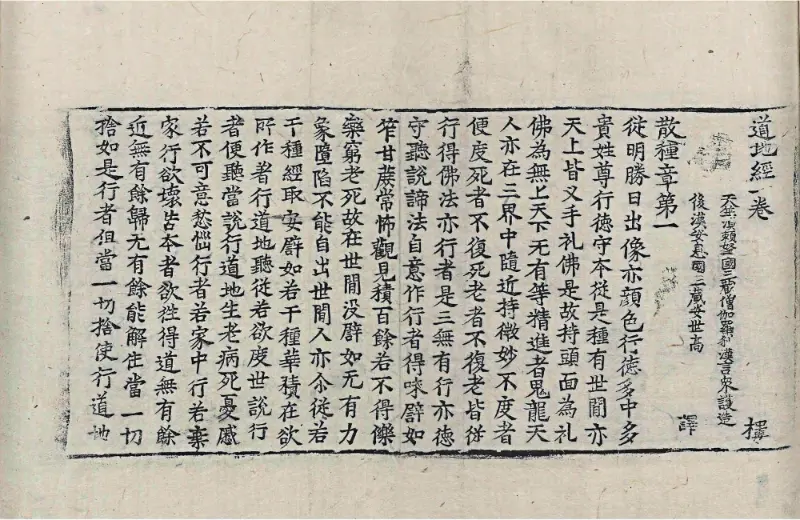 道地經一卷 樓
天竺須賴拏國三藏僧伽羅剎漢言眾護造
後漢安息國三藏安世高 譯
散種章第一
從明勝日出像亦顏色行德多中多
貴姓尊行德守本從是種有世間亦
天上皆叉手礼佛是故持頭面為礼
佛為無上天下无有等精進者鬼龍天
人亦在三界中隨近持微妙不度者
便度死者不復死老者不復老皆從
行得佛法亦行者是三無有行亦德
守聽說諦法自意作行者得味譬如
笮甘蔗常怖觀見積百餘若不得
藥窮老死故在世間没譬如无有力
象墮陷不能自出世間人亦尒從若
干種經取安譬如若干種華積在欲
所作著行道地聽從若欲度世說行
者便聽當說行道地生老病死憂慼
若不可意愁惱行者若家中行若棄
家行欲壞苦本者欲徃得道無有餘
近無有餘歸无有餘能解住當一切
捨如是行者但當一切捨使行道地